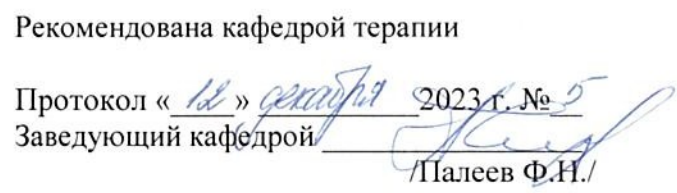 Рекомендована кафедрой терапии
Протокол «12» декабря 2023 г. № 5
Заведующий кафедрой
/Палеев Ф.Н./